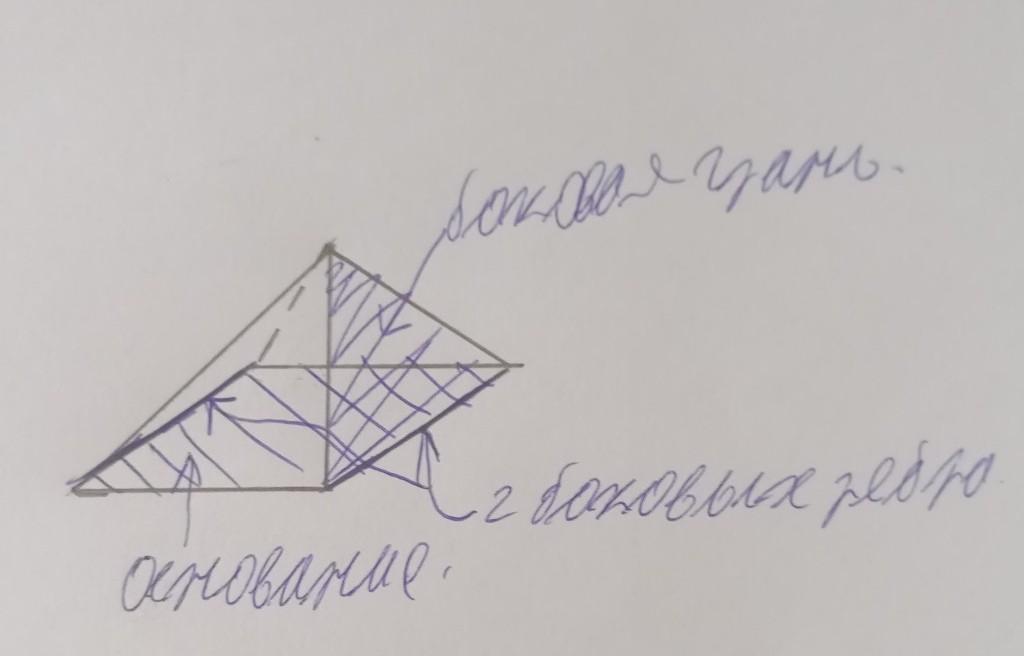 боковая грань.
2 боковых ребра
основание.